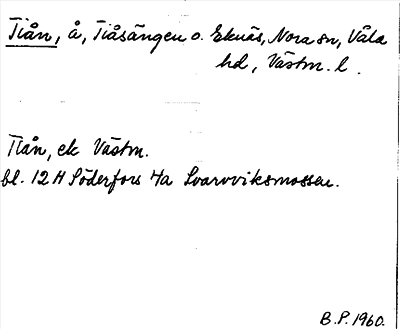 Tiån, å, Tiåsängen o. Eknäs, Nora sn, Våla
hd, Västm. l.
Tiån, ek Västm.
bl. 12 H Söderfors 4a Svarvviksmossen.
B.P. 1960.